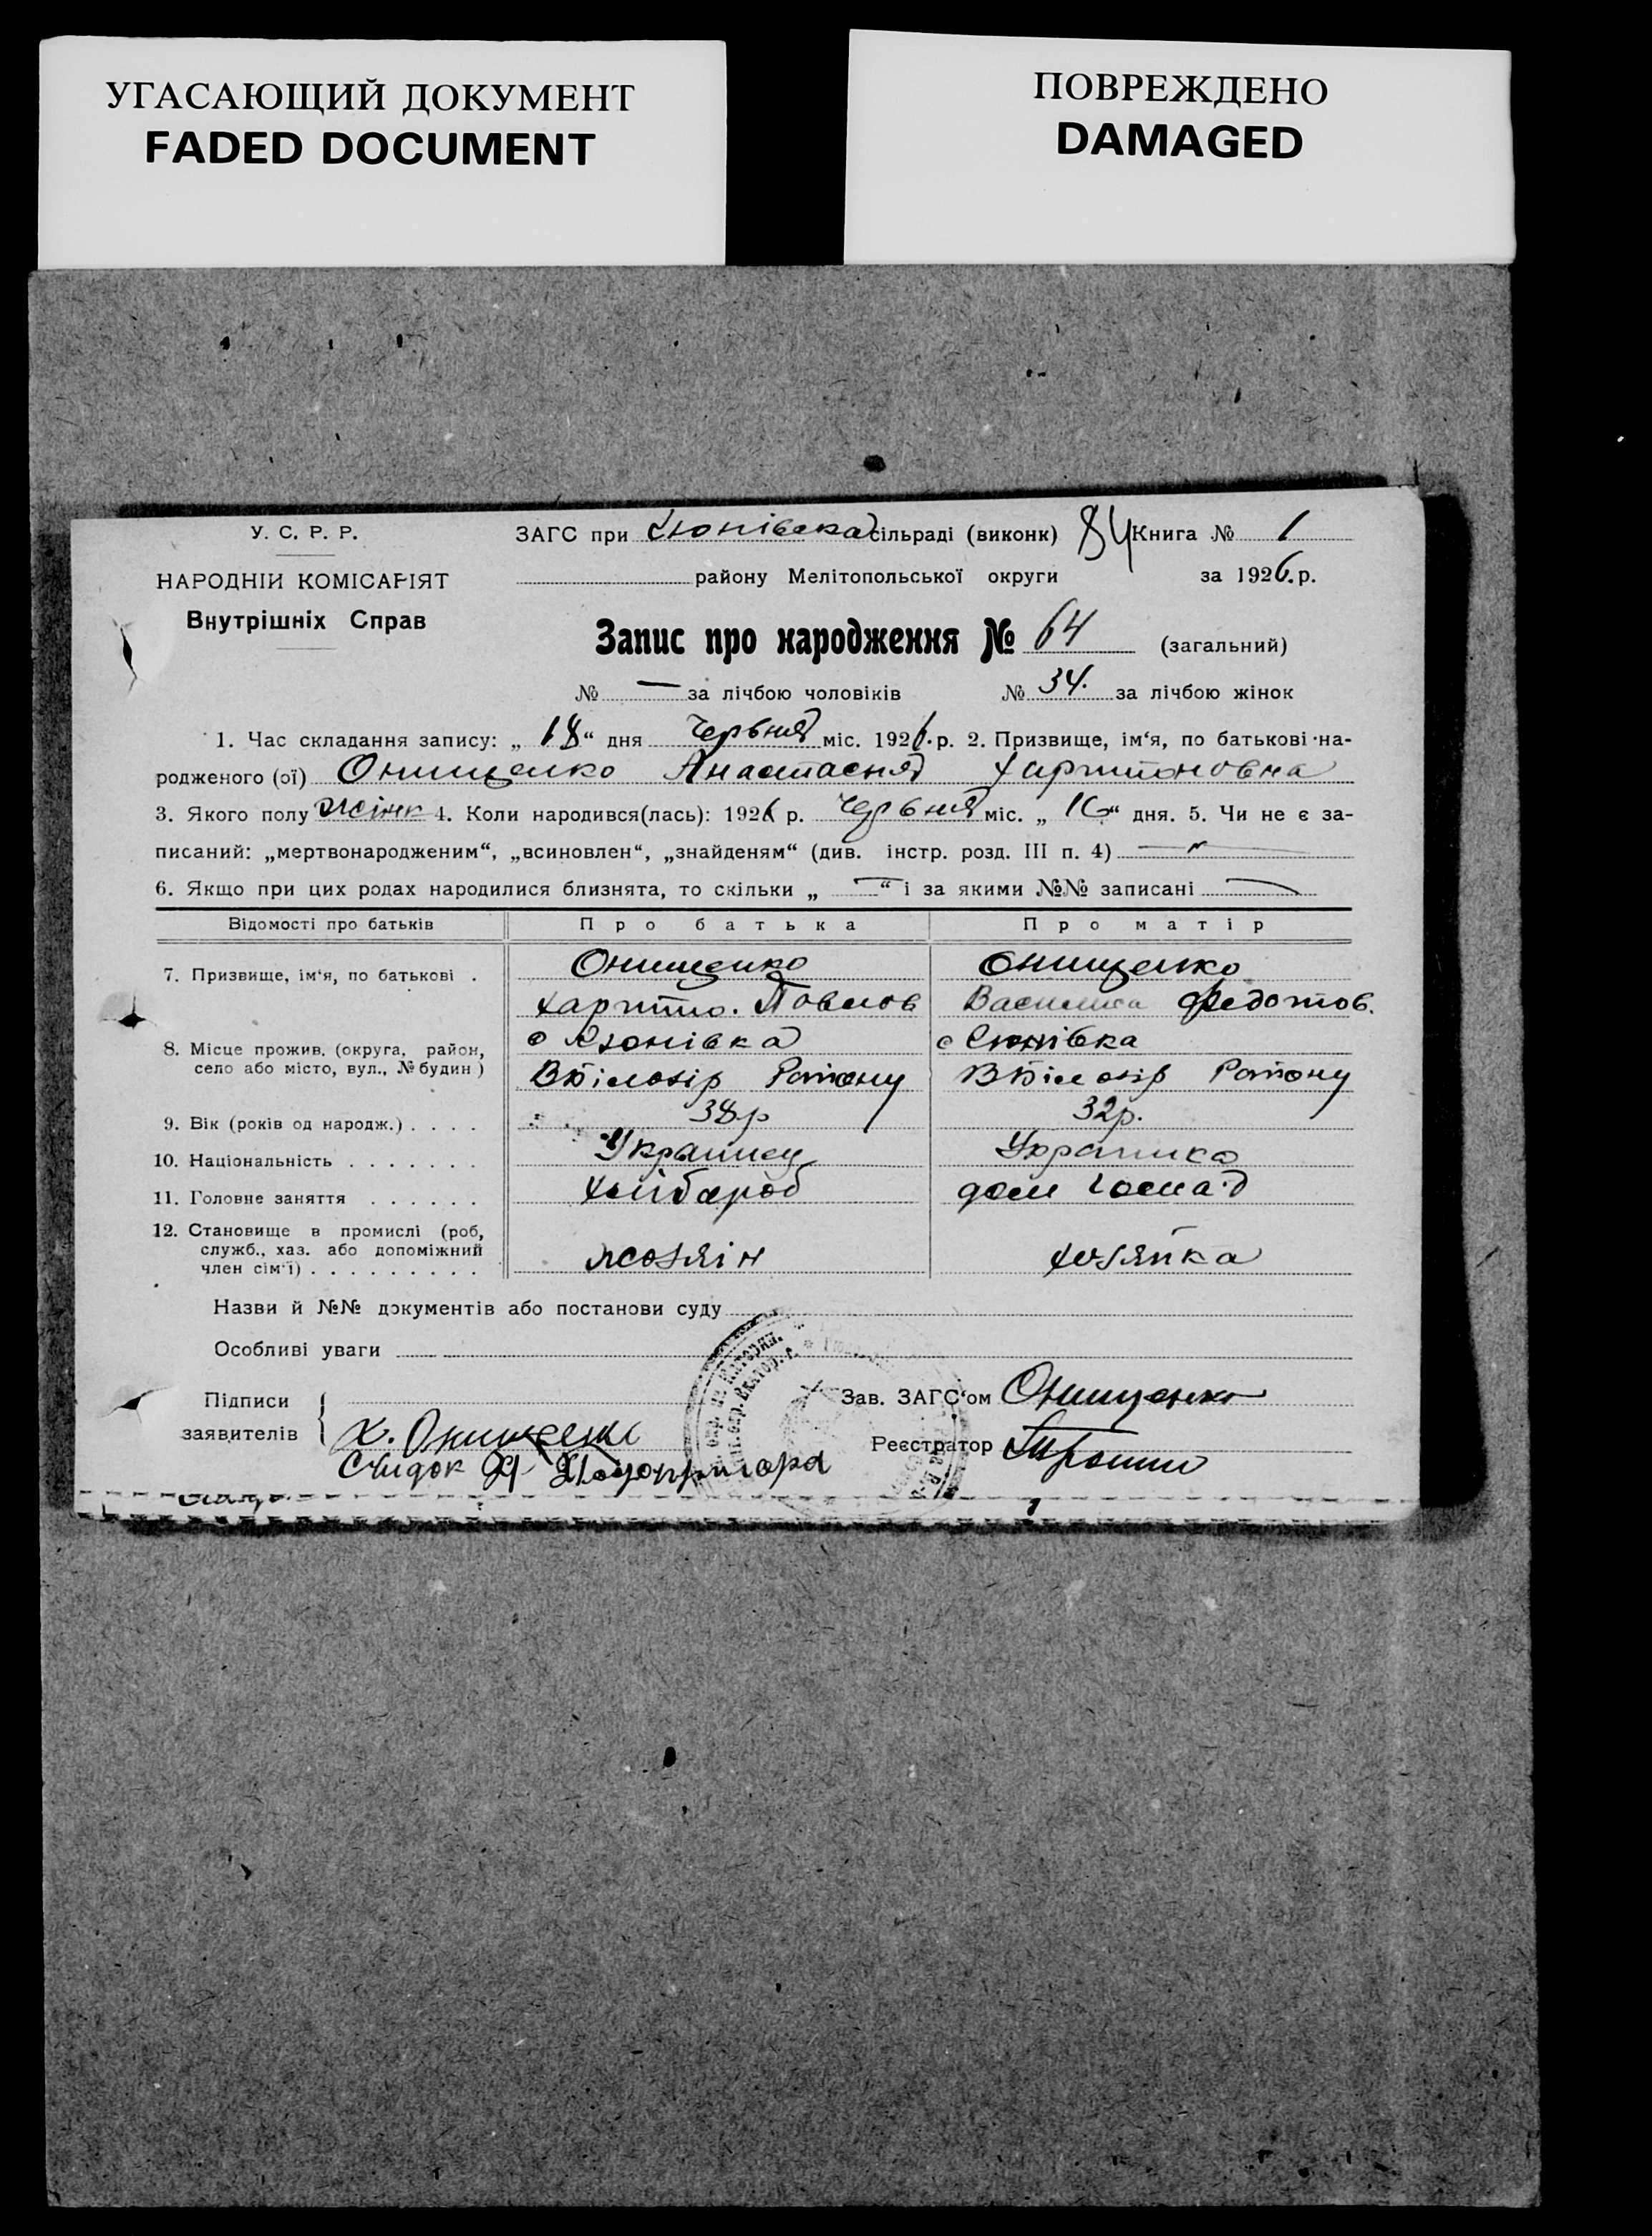 УГАСАЮЩИЙ ДОКУМЕНТ
FADED DOCUMENT
ПОВРЕЖДЕНО
DAMAGED
У. С. Р. Р.
НАРОДНІЙ КОМІСАРІЯТ
Внутрішніх Справ
ЗАГС при сільраді (виконк) 84 Книга № 1
району Мелітопольської округи за 1926. р.
Запис про народження № 64 (загальний)
№ — за лічбою чоловіків № 34. за лічбою жінок
1. Час складання запису: „ 18 “ дня Червня міс. 1926. р. 2. Призвище, ім‘я, по батькові на-
родженого (ої) Онищенко Анастасия Харитоновна
3. Якого полу жінк 4. Коли народився(лась): 1926 р. Червня міс. „ 16 “ дня. 5. Чи не є за-
писаний: „мертвонародженим“, „всиновлен“, „знайденям“ (див. інстр. розд. III п. 4) —
6. Якщо при цих родах народилися близнята, то скільки „ — “ і за якими №№ записані —
Відомості про батьків Про батька Про матір
7. Призвище, ім‘я, по батькові . Онищенко Онищенко
Харито. Павлов Василиса Федотов.
8. Місце прожив. (округа, район,
село або місто, вул., № будин)
В Білозір Району В Білозір Району
9. Вік (років од народж.) . . . . 38р 32р.
10. Національність . . . . . . . Украинец Украинка
11. Головне заняття . . . . . . Хлібороб дом Госпад
12. Становище в промислі (роб,
служб., хаз. або допоміжний
член сім‘ї) . . . . . . . . . хозяін хозяйка
Назви й №№ документів або постанови суду
Особливі уваги
Підписи
заявителів
Х. Онищенко
Зав. ЗАГС‘ом Онищенко
Реєстратор